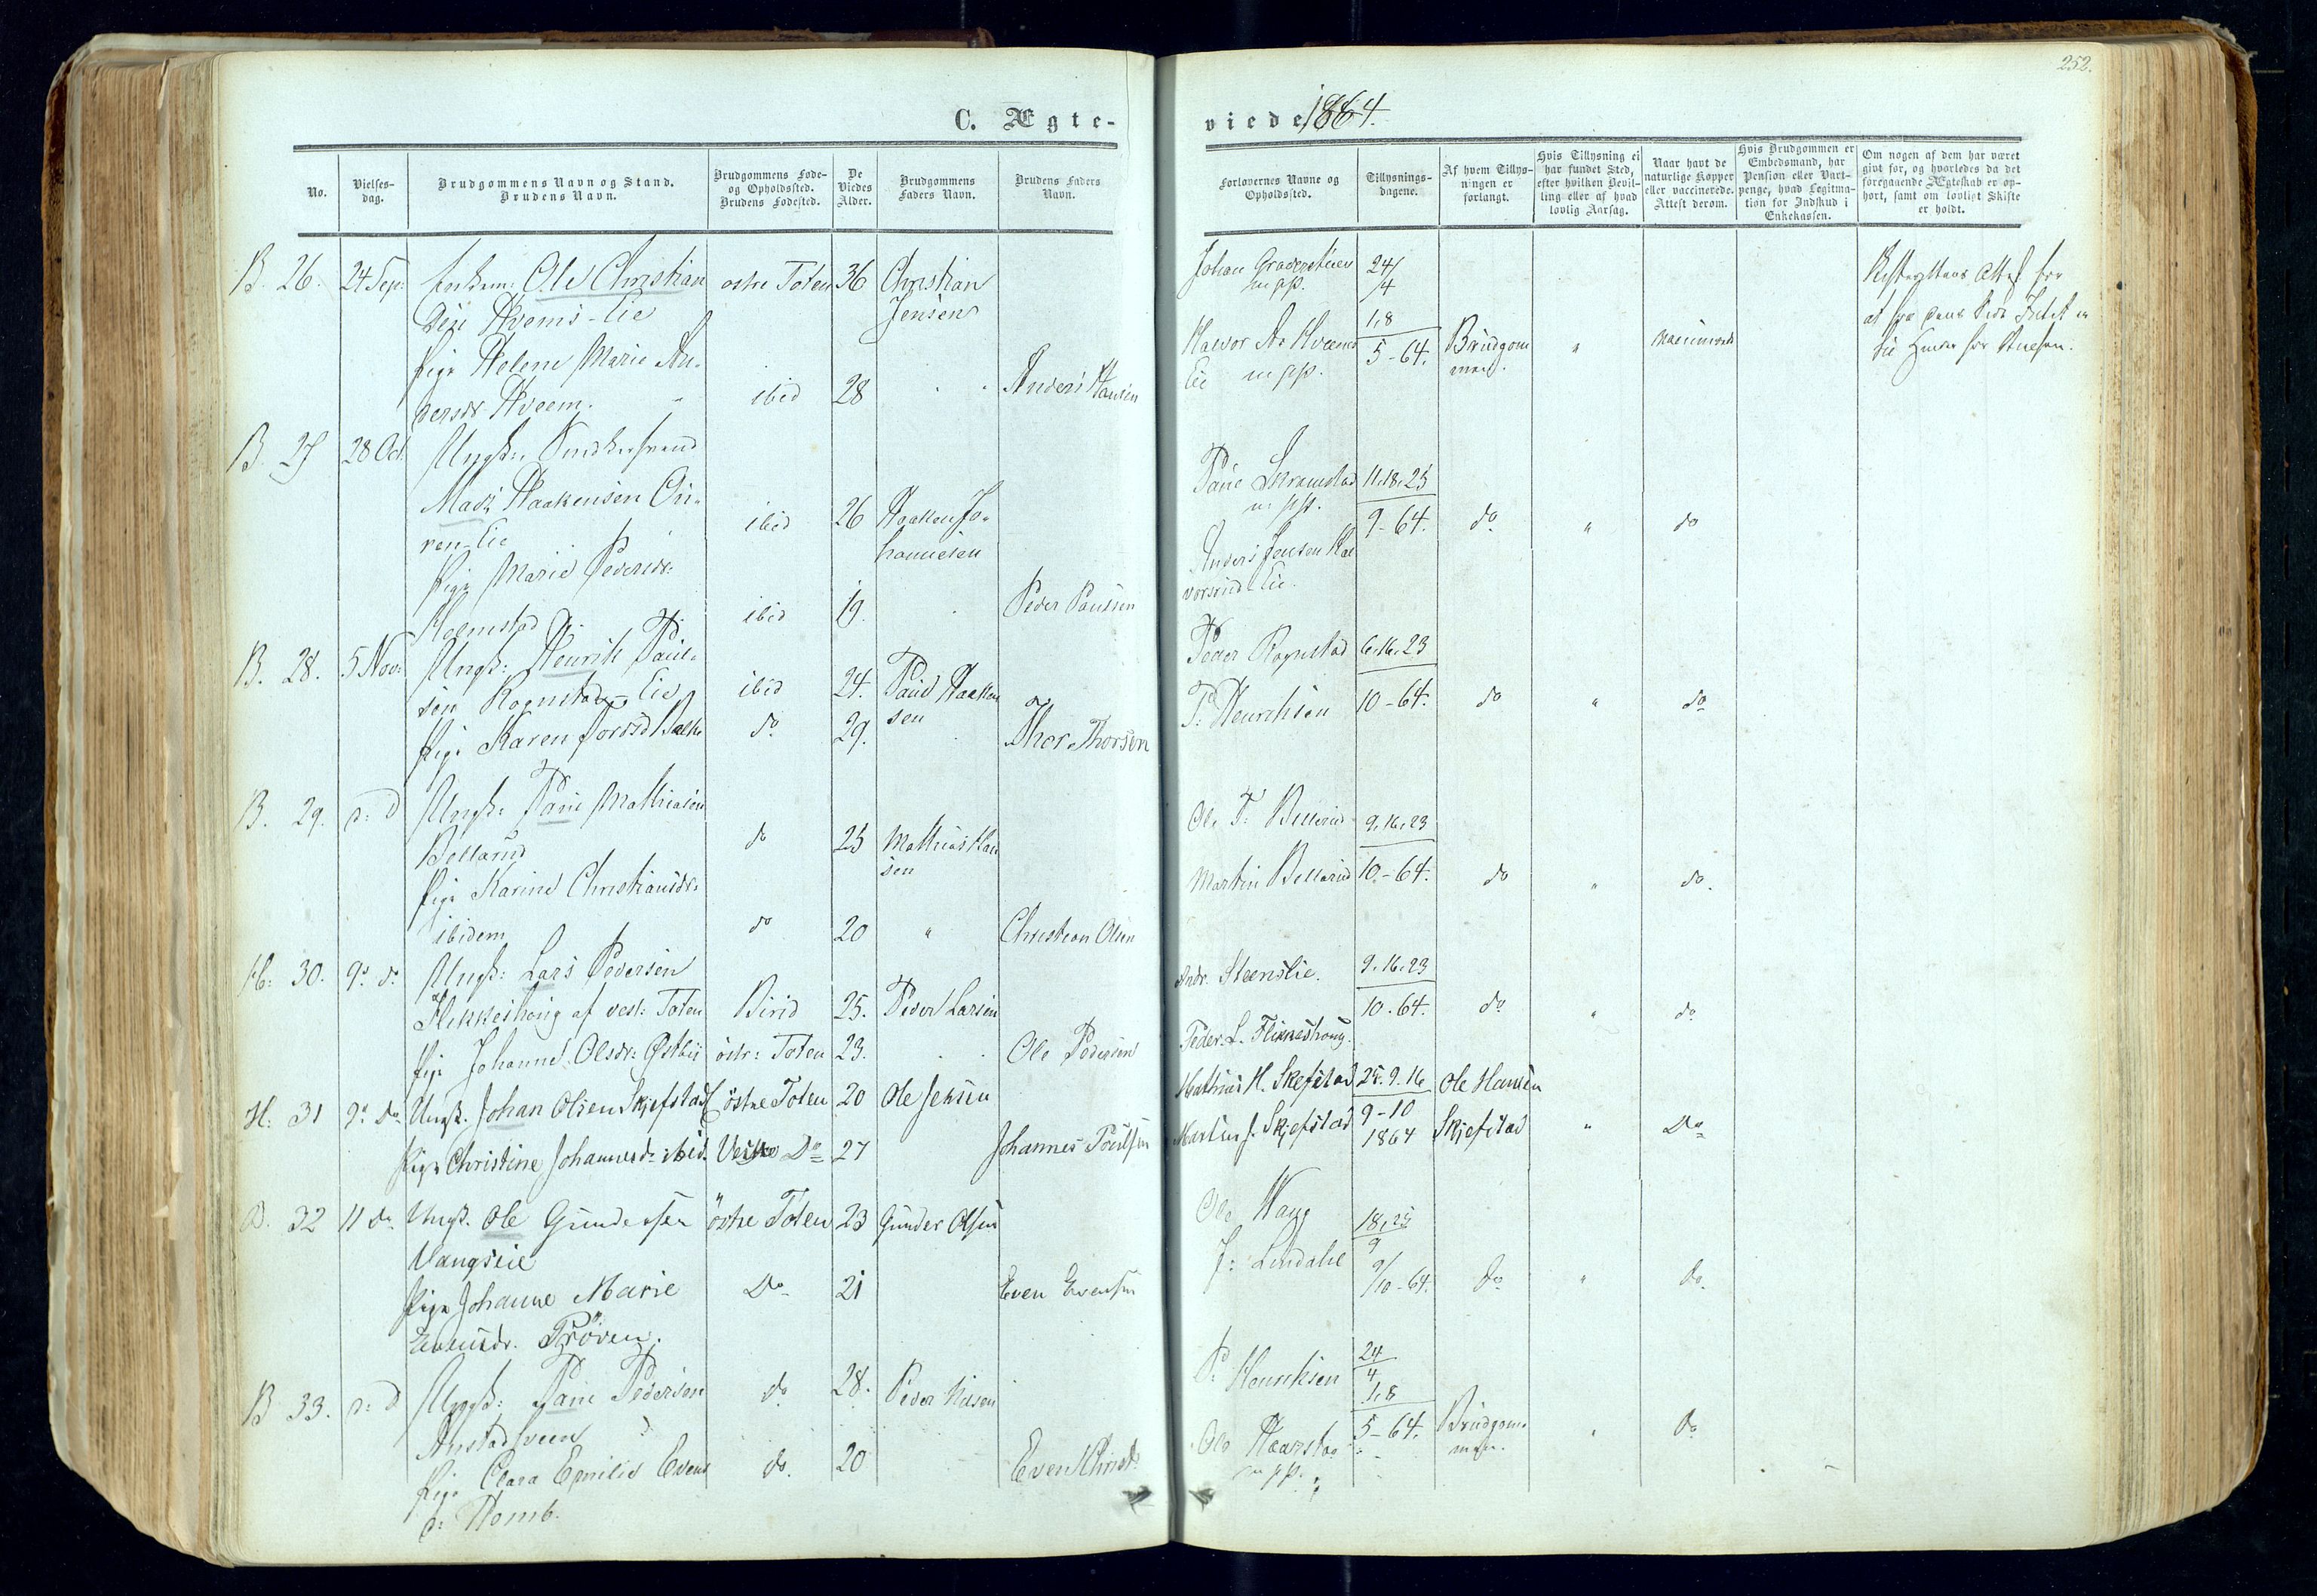 252.
C. Ægte-
viede 1864.
No.
Vielses-
dag.
Brudgommens Navn og Stand.
Brudens Navn.
Brudgommens Føde-
og Opholdssted.
Brudens Fødested.
De
Viedes
Alder.
Brudgommens
Faders Navn.
Brudens Faders
Navn.
Forlovernes Navne og
Opholdssted.
Tillysnings-
dagene.
Af hvem Tillys-
ningen er
forlangt.
Hvis Tillysning ei
har fundet Sted,
efter hvilken Bevil-
ling eller af hvad
lovlig Aarsag.
Naar havt de
naturlige Kopper
eller vaccinerede.
Attest derom.
Hvis Brudgommen er
Embedsmand, har
Pension eller Vart-
penge, hvad Legitima-
tion for Indskud i
Enkekassen.
Om nogen af dem har været
givt før, og hvorledes da det
foregaaende Ægteskab er op-
hørt, samt om lovligt Skifte
er holdt.
B. 26. 24 Sep: Enkem: Ole Christian østre Toten 36 Christian
Hvems-Eie Jensen
Pige Helene Marie An-
dersdr Hveem. ibid 28 Anders Hansen
Johan 24/4
mpp. 1,8
Halvor Hveems 5-64. Brudgom
Eie mpp. men. " vaccinerede
Attest for
at fra
B. 27 28 Oct. Ungk:
Mads Haakensen
Eie ibid 26 Haaken Jo-
hannesen
Pige Marie Pedersdr:
ibid 19. Peder Paulsen
Skramstad 11,18,25
mpp. 9-64. do " do
Anders Jensen Hal
vorsrud-Eie.
B. 28. 5 Nov: Ungk: Henrik Paul-
sen Rognstad Eie ibid 24. Paul Haaken
sen
Pige Karen Tordsd Balke do 29. Thor Thorsen
Peder Rognstad 6,16,23
P: Henriksen 10-64. do " do
B. 29. d: D Ungk: Paul Mathiasen
Bellerud do 25 Mathias Han
sen
Pige Karine Christiansdr:
ibidem do 20 " Christian Olsen
Ole P: Bellerud 9,16,23
Martin Bellerud 10-64. do " do.
H: 30. 9: d: Ungk: Lars Pedersen
Flikkeshoug af vest: Toten Birid 25. Peder Larsen
Pige Johanne Olsdr: Østby østr: Toten 23. Ole Pedersen
Andr. Steenslie. 9,16,23
10-64. do " do
Peder L. Flikkeshoug.
H: 31 9: do Ungk. Johan Olsen Skjefstad østre Toten 20 Ole Jensen
Pige Christine Johannesdr: ibid. Vestre Do 27 Johannes Poulsen
Mathias H. Skjefstad 25. 9. 16 Ole Hansen
Martin J. Skjefstad 9-10
1864 Skjefstad " Do
B. 32 11 do Ungk. Ole Gundersen østre Toten 23 Gunder Olsen
Vangseie
Pige Johanne Marie Do 21 Even Evensen
Evensdr. Prøven.
Ole Wang 18,25
J: Lindahl 9
9/10-64. do " do.
B 33. d: D Ungk: Paul Pedersen do 28. Peder Nilsen
Pige Clara Emilie Evens do. 20 Even Christ:
d: Homb.
P: Henriksen 24
4
1,8
Ole 5-64. Brudgom-
mpp. men. " do